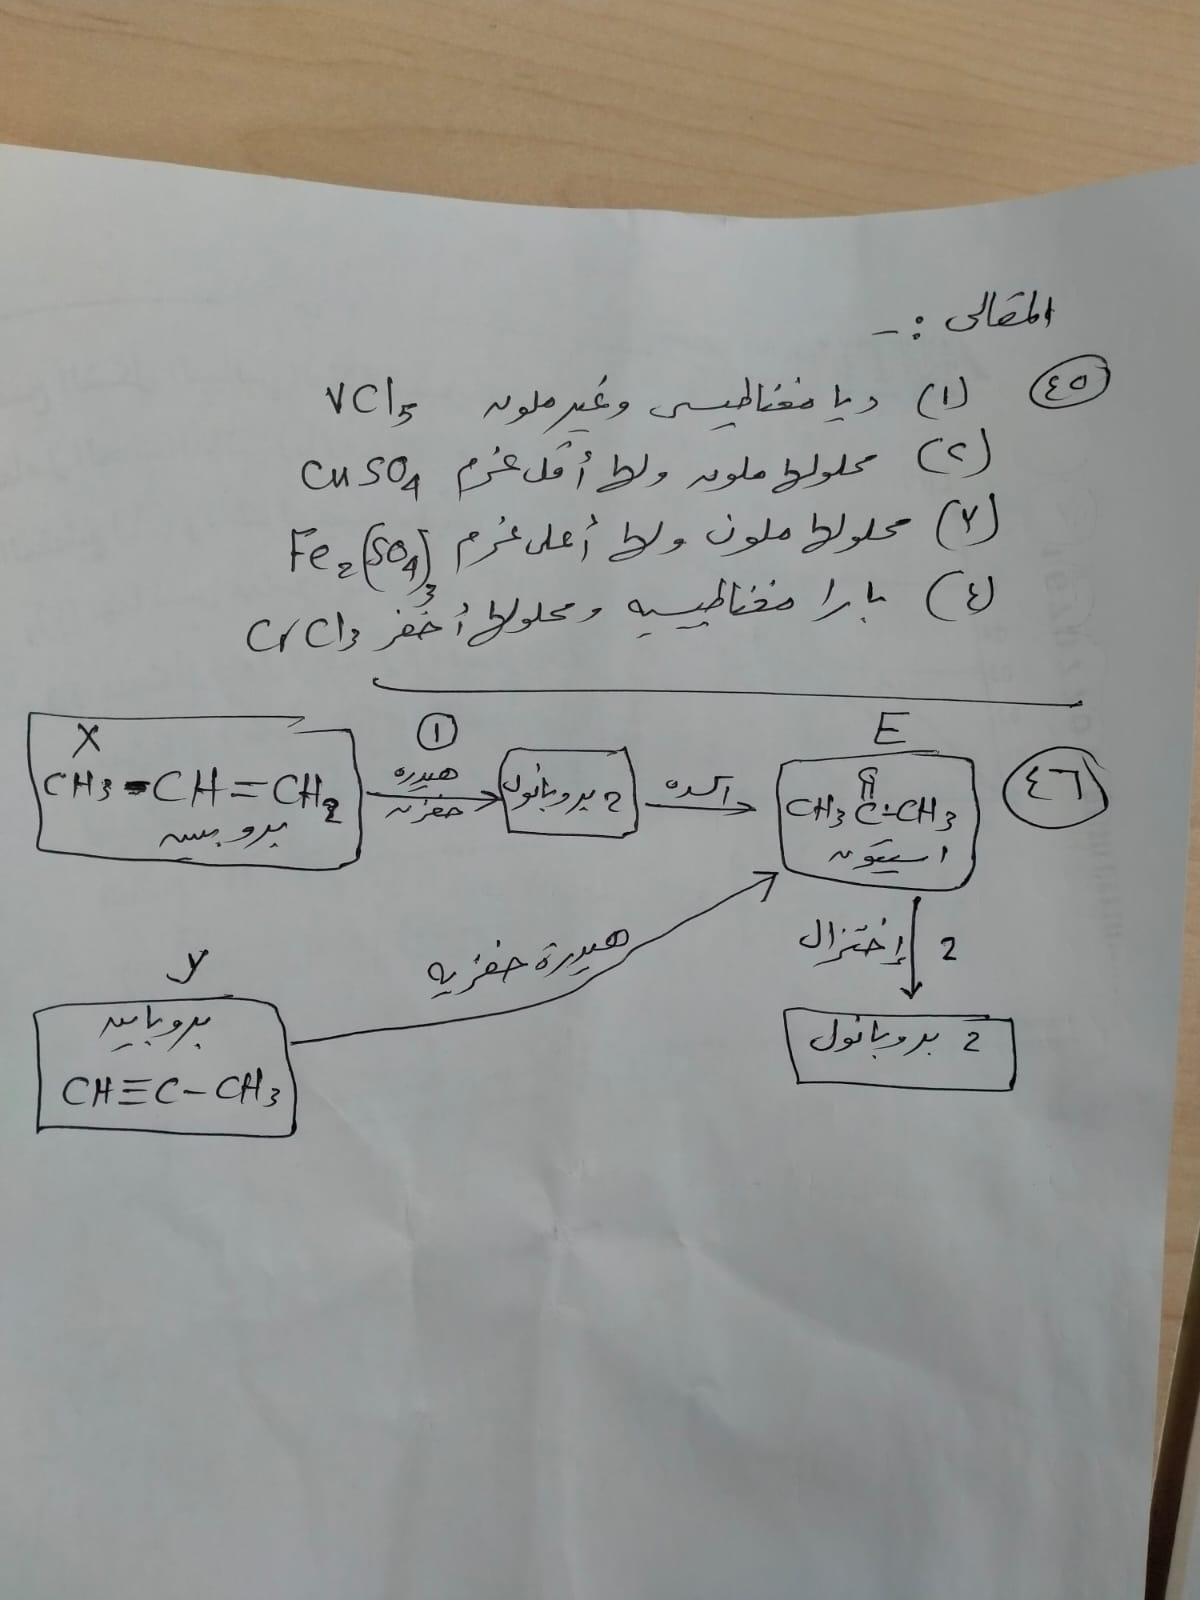 المقالى :-
٤٥ (١) ديا مغناطيسى وغير ملون VCl5
(٢) محلولها ملون ولها أقل عزم CuSO4
(٣) محلولها ملون ولها أعلى عزم Fe2(SO4)3
(٤) بارا مغناطيسيه ومحلولها أخضر CrCl3
٤٦
X
CH3-CH=CH2
بروبين
①
هيدره
حفزيه
2 بروبانول
أكسده
E
O
CH3 C-CH3
اسيتون
إختزال 2
2 بروبانول
هيدرة حفزيه
y
بروباين
CH≡C-CH3